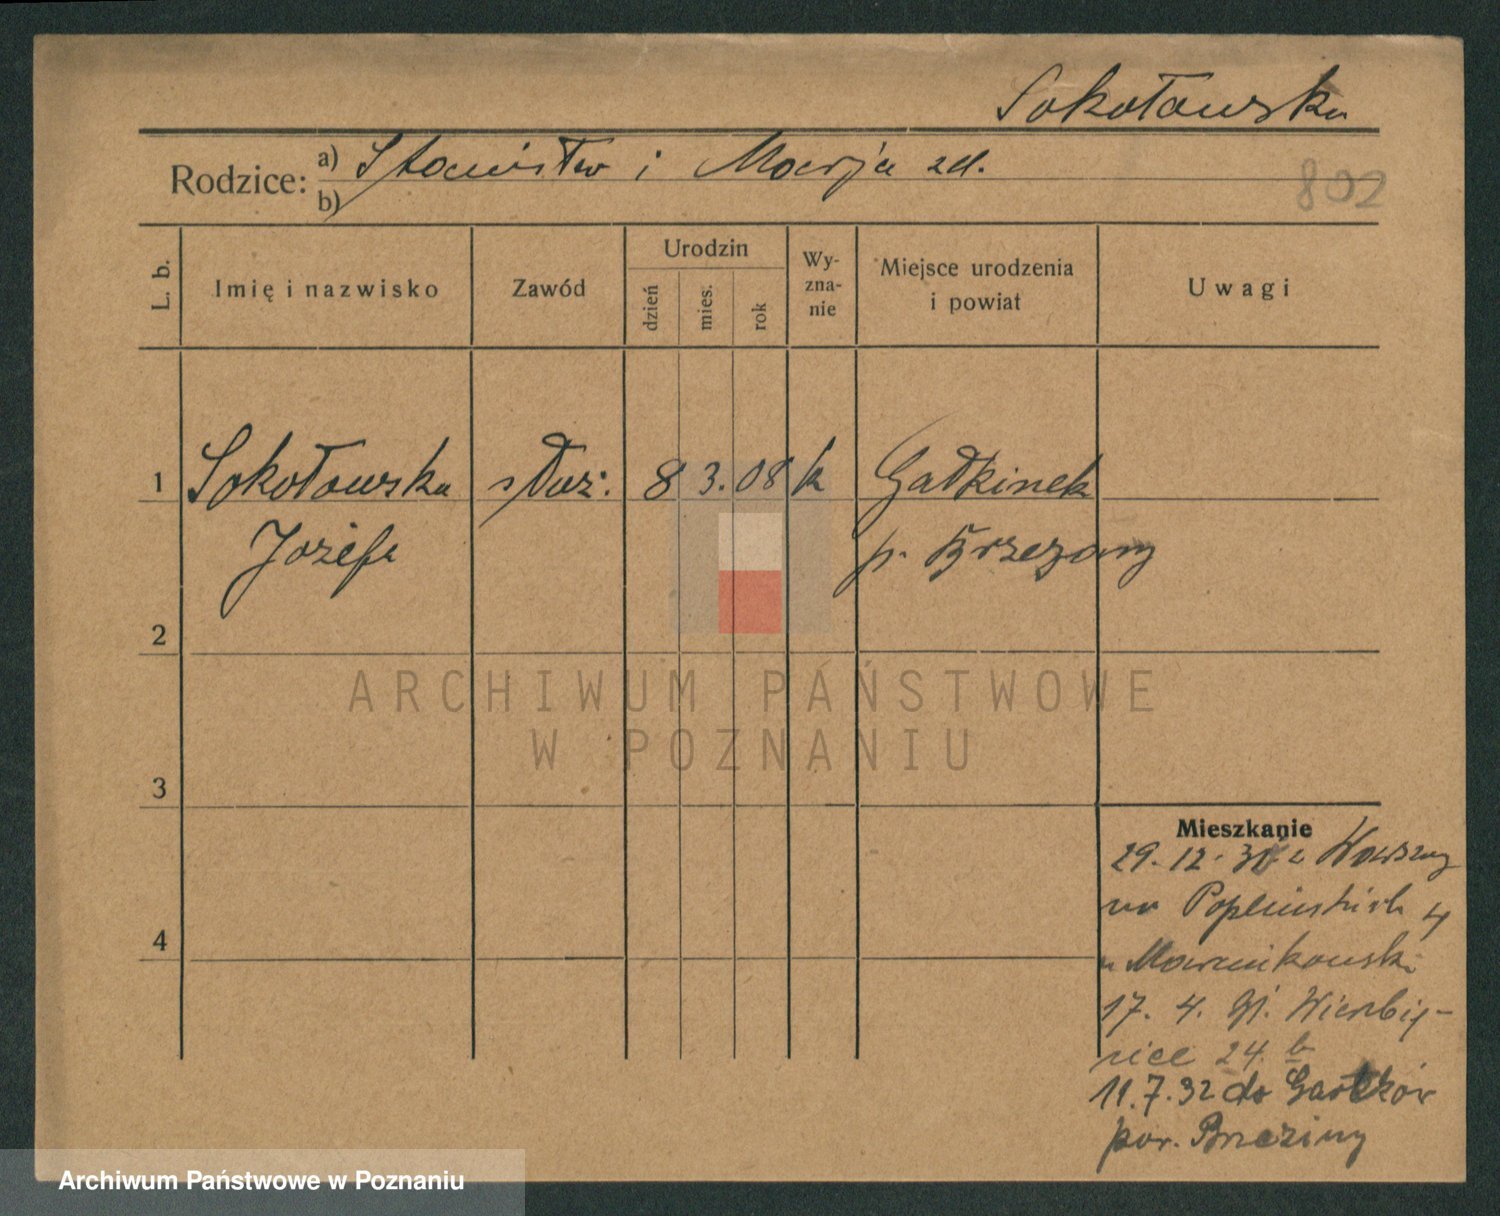 Sokołowska
Rodzice: a) Stanisław i Marja zd.
b)
802
L. b.
Imię i nazwisko
Zawód
Urodzin
dzień
mies.
rok
Wy-
zna-
nie
Miejsce urodzenia
i powiat
Uwagi
1 Sokołowska służ. 8 3. 08 k Gałkinek
Józefa p. Brzezany
2
3
4
Mieszkanie
29.12.31 z Warszawy
na Poplińskich 4
u Marcinkowski
17. 4. Wierzbię-
cice 24 b
11.7.32 do Gałków
pow. Brzeziny
ARCHIWUM PAŃSTWOWE
W POZNANIU
Archiwum Państwowe w Poznaniu